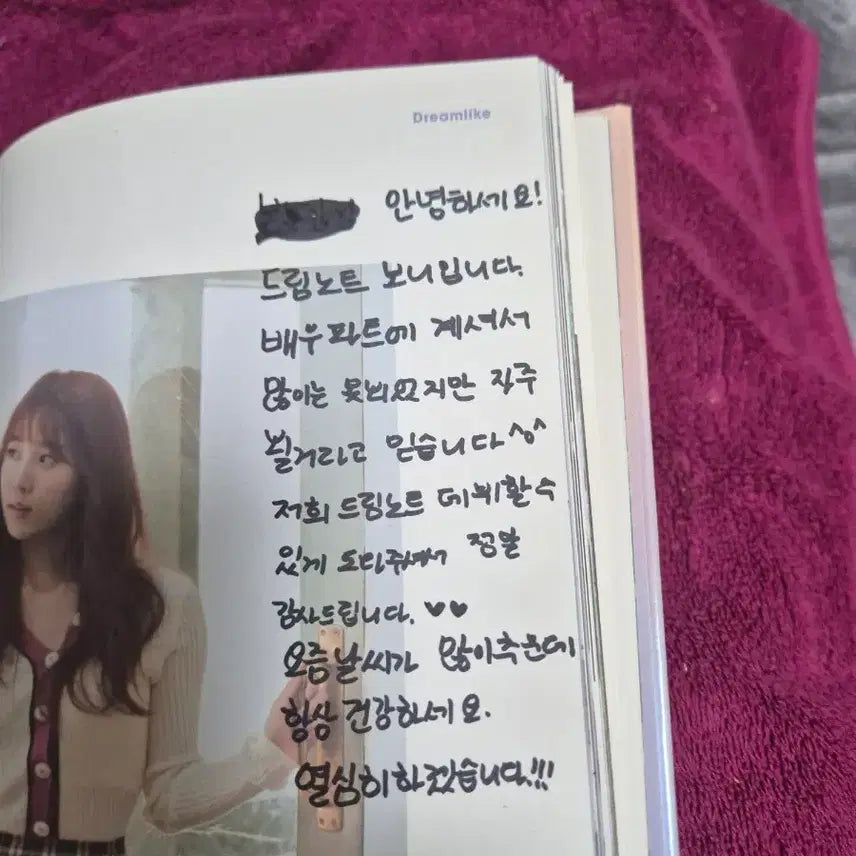 Dreamlike
안녕하세요!
드림노트 보니입니다.
배우파트에 계셔서
많이는 못뵈었지만 자주
뵐거라고 믿습니다^o^
저희 드림노트 데뷔할 수
있게 도와주셔서 정말
감사드립니다. ♥♥
요즘날씨가 많이추운데
항상 건강하세요.
열심히하겠습니다!!!